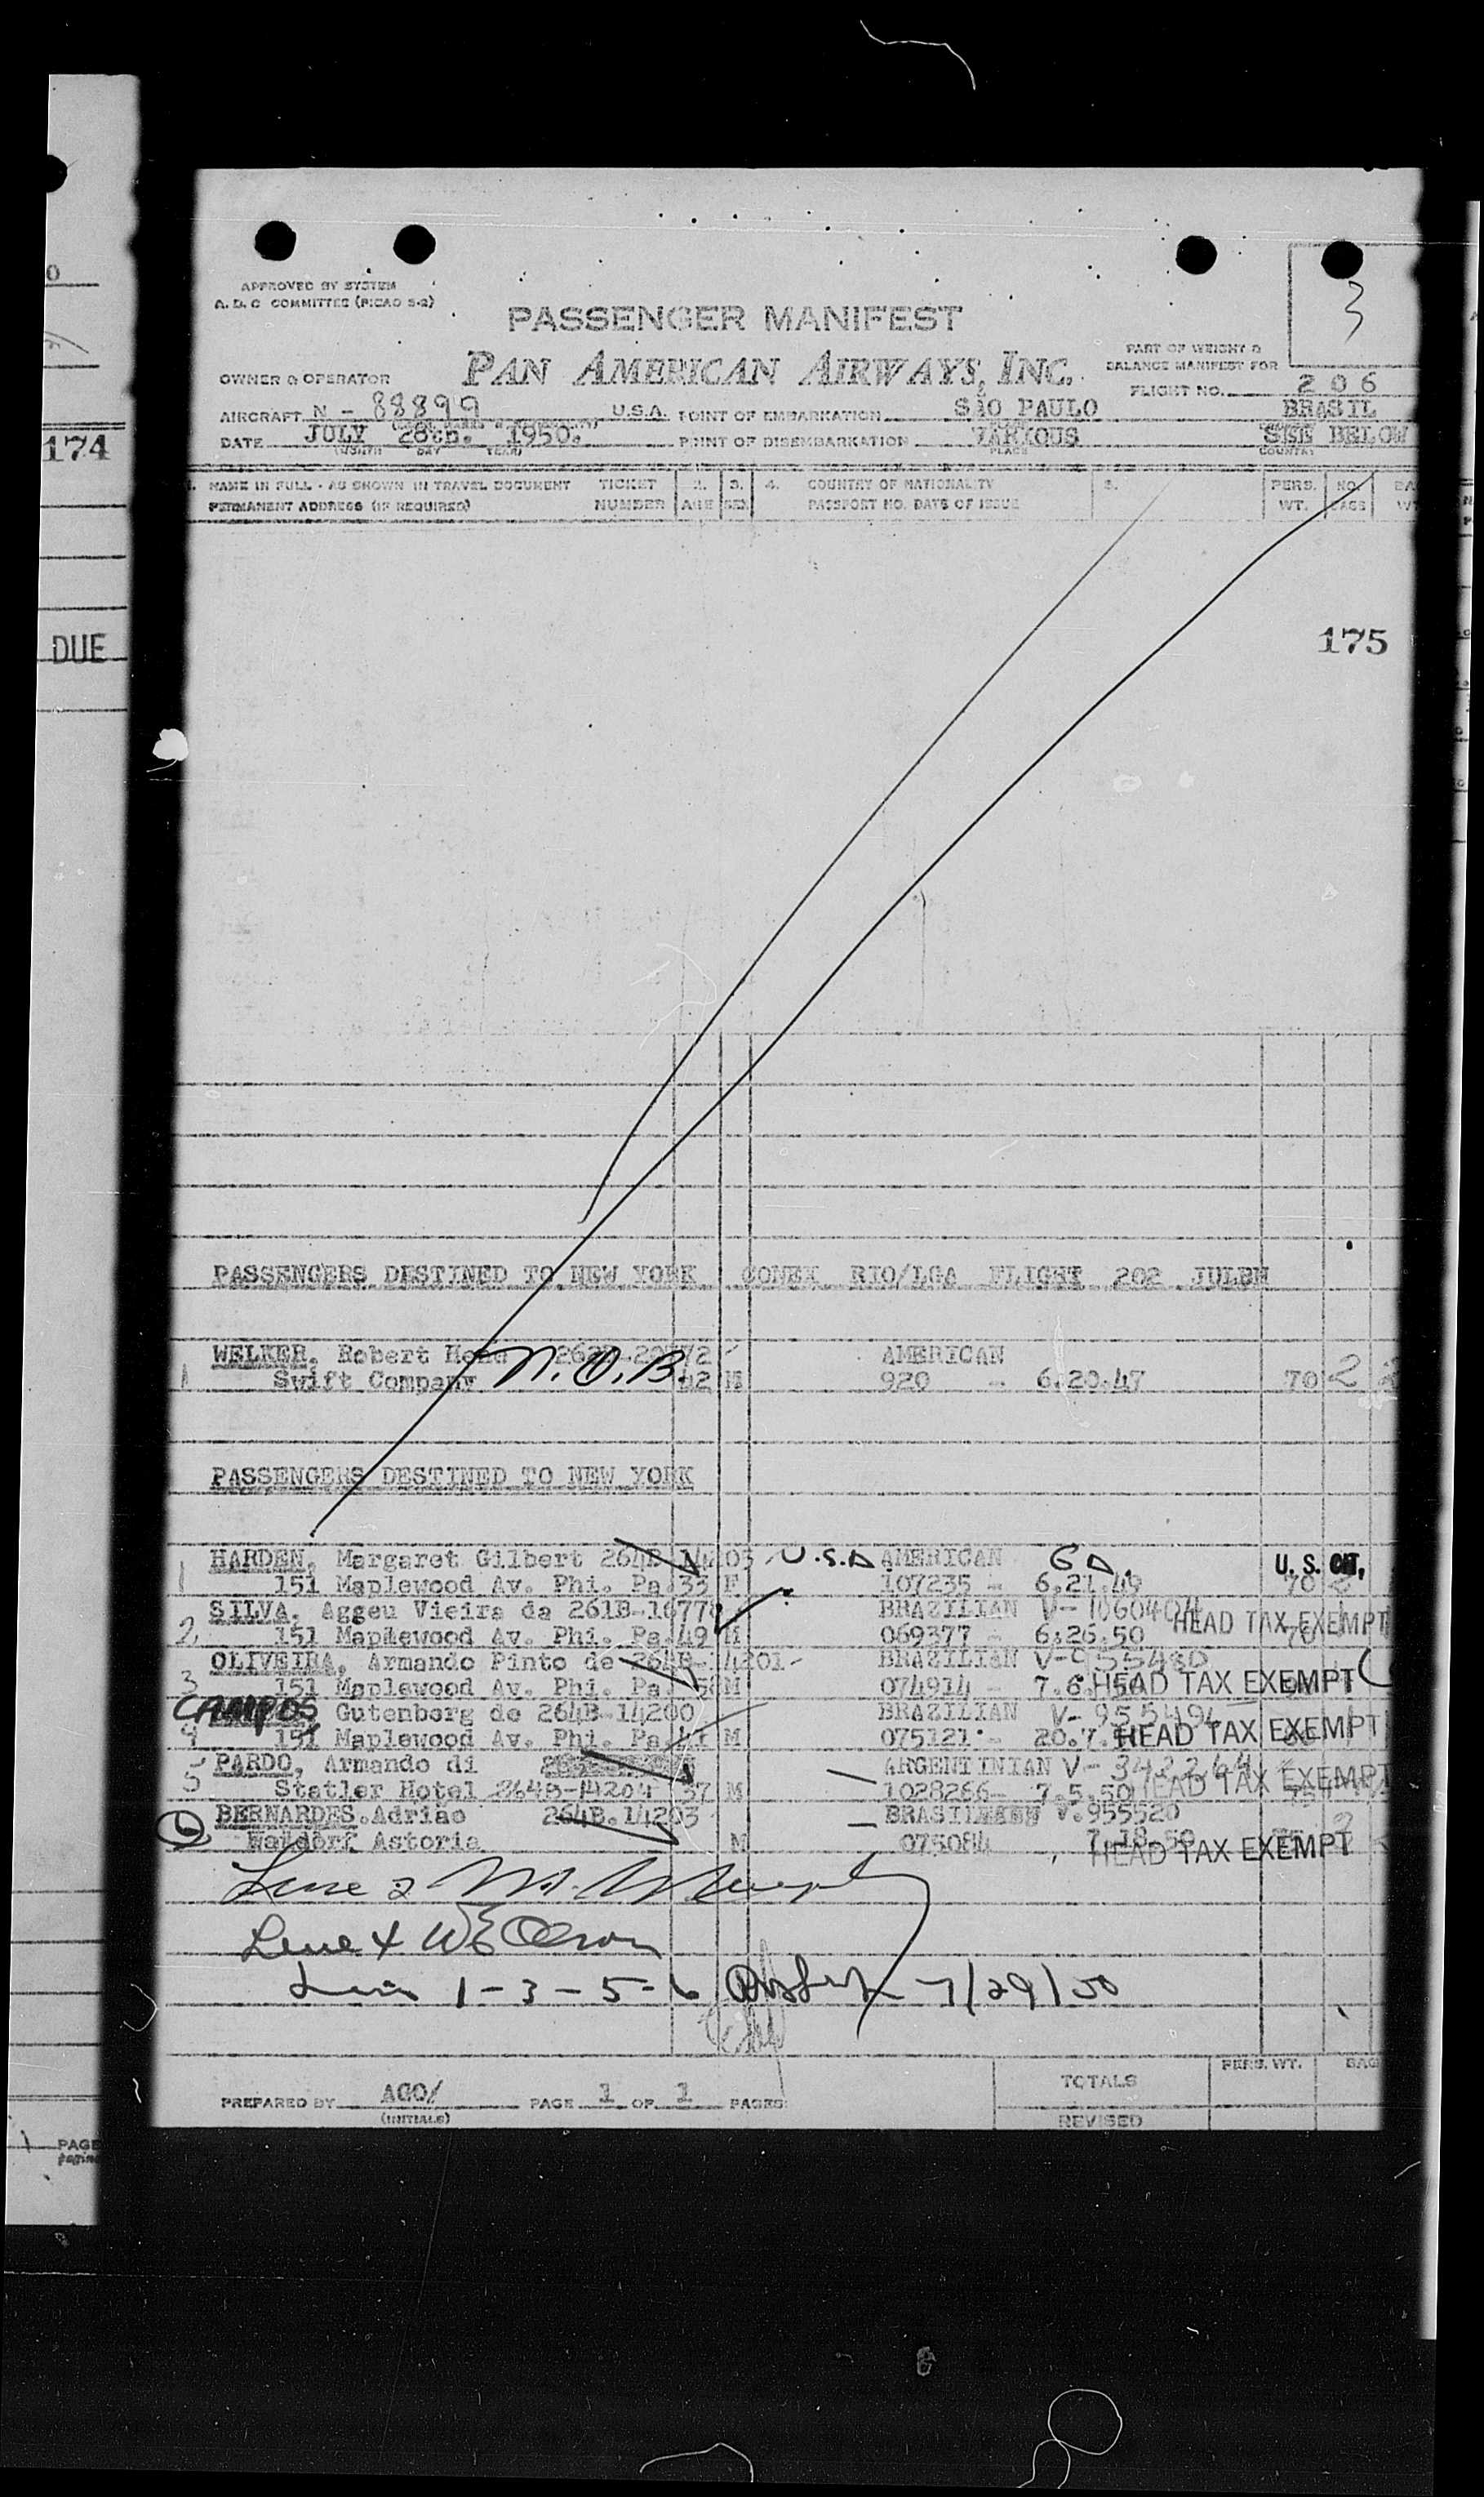 APPROVED BY SYSTEM
A. D. C COMMITTEE (PICAO S-2)
3
PASSENGER MANIFEST
PAN AMERICAN AIRWAYS, INC.
PART OF WEIGHT &
BALANCE MANIFEST FOR
OWNER & OPERATOR
FLIGHT NO. 206
AIRCRAFT N - 88899 U.S.A. POINT OF EMBARKATION SÃO PAULO BRASIL
DATE JULY 28th. 1950. POINT OF DISEMBARKATION VARIOUS SEE BELOW
(MONTH DAY YEAR) PLACE COUNTRY
174
NAME IN FULL - AS SHOWN IN TRAVEL DOCUMENT TICKET 2. 3. 4. COUNTRY OF NATIONALITY 5. PERS. NO.
PERMANENT ADDRESS (IF REQUIRED) NUMBER AGE SEX PASSPORT NO. DATE OF ISSUE WT.
175
DUE
PASSENGERS DESTINED TO NEW YORK CONEX RIO/LGA FLIGHT 202
WELKER, Robert AMERICAN
1 Swift Company N.O.B. 42 M 920 - 6.20.47 70 2
PASSENGERS DESTINED TO NEW YORK
HARDEN, Margaret Gilbert 264B 14205 U.S.A AMERICAN U. S. CIT,
1 151 Maplewood Av. Phi. Pa. 33 F 107235 - 6.21.49 70
SILVA, Aggeu Vieira da 261B-16778 BRAZILIAN V-1060404
2 151 Maplewood Av. Phi. Pa. 49 M 069377 - 6.26.50 HEAD TAX EXEMPT
OLIVEIRA, Armando Pinto de 264B-14201 BRAZILIAN V-955480
3 151 Maplewood Av. Phi. Pa. M 074914 - HEAD TAX EXEMPT
CAMPOS Gutenberg de 264B-14200 BRAZILIAN V-955494
4 151 Maplewood Av. Phi. Pa. 41 M 075121 - 20.7. HEAD TAX EXEMPT
PARDO, Armando di ARGENTINIAN V-342244
5 Statler Hotel 264B-14204 37 M 1028266- 7.5.50 HEAD TAX EXEMPT
BERNARDES.Adrião 264B.14203 V.955520
6 Waldorf Astoria M 075084 7.18.50 HEAD TAX EXEMPT
Line 2
Line 4 WE Olson
1-3-5-6 7/29/50
PREPARED BY AGO/ PAGE 1 OF 1 PAGES
(INITIALS)
TOTALS
PERS. WT.
REVISED
PAGE